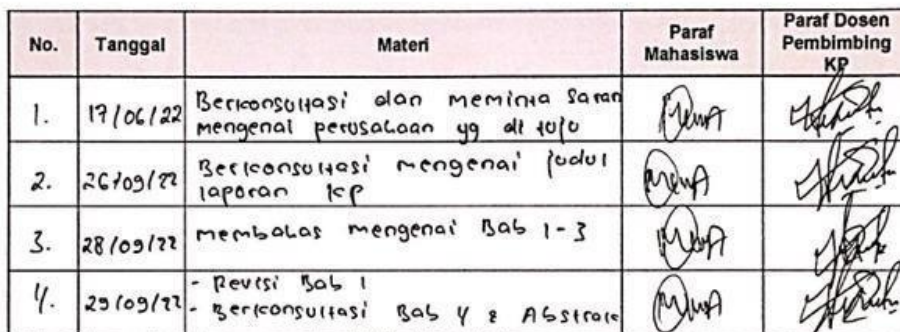 No. Tanggal Materi Paraf Mahasiswa Paraf Dosen Pembimbing KP
1. 17/06/22 Berkonsultasi dan meminta saran
mengenai perusahaan yg di tuju
2. 26/09/22 Berkonsultasi mengenai judul
laporan kp
3. 28/09/22 membahas mengenai Bab 1-3
4. 29/09/22 - Revisi Bab 1
- Berkonsultasi Bab 4 & Abstrak